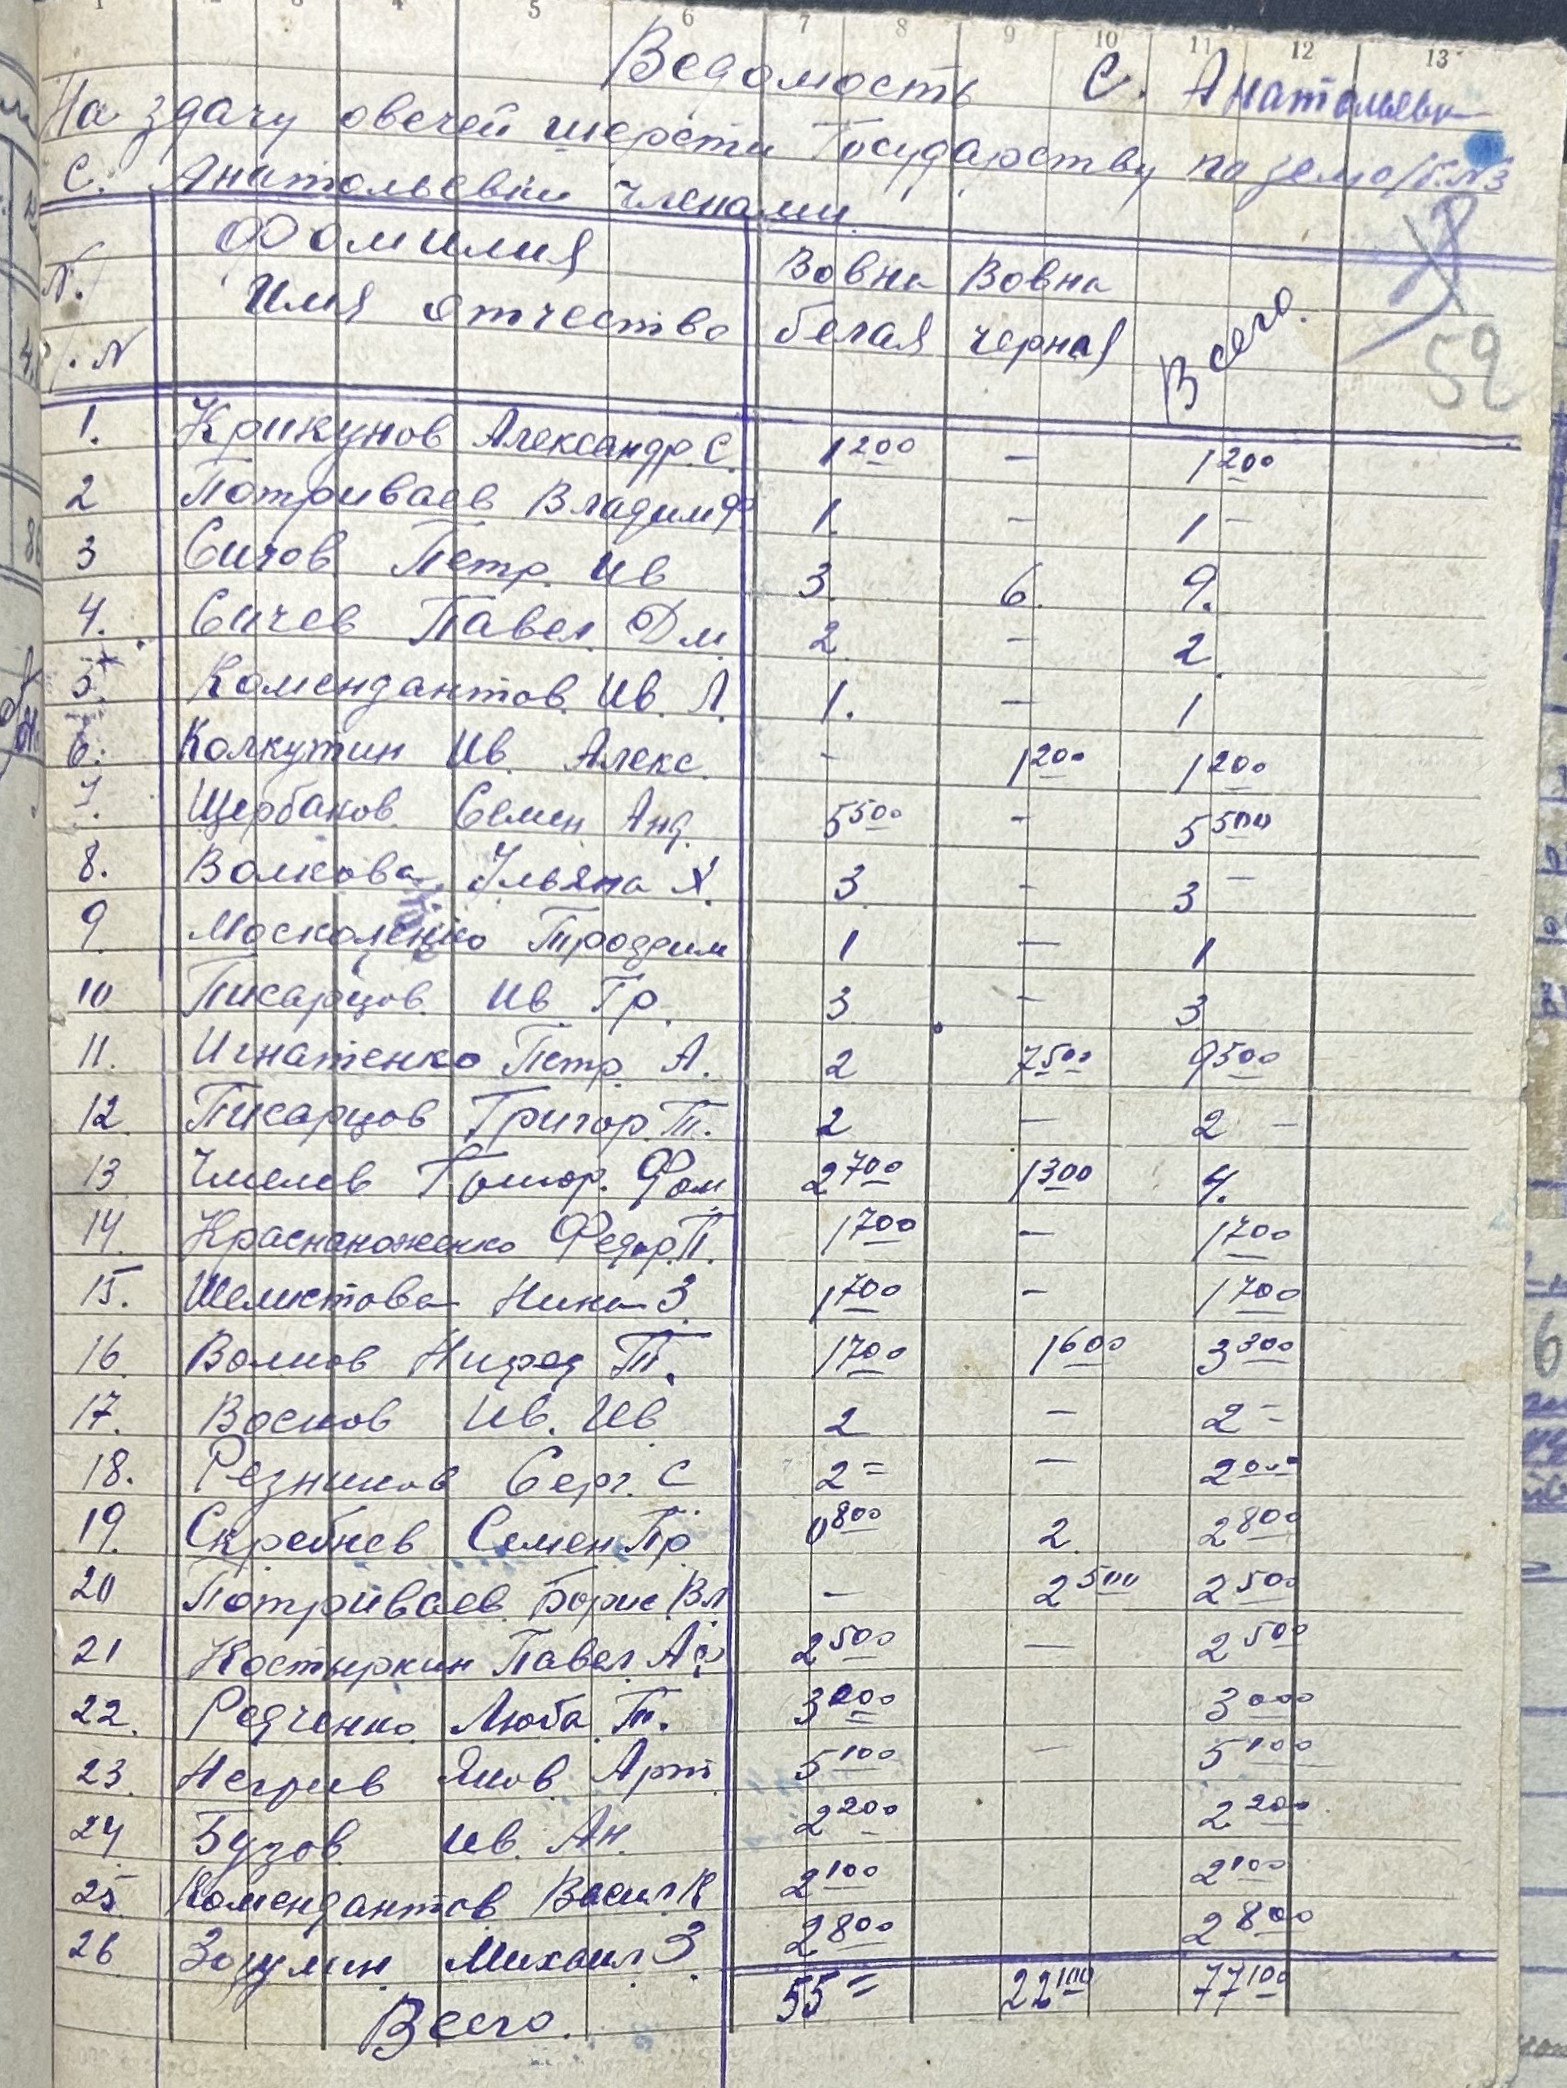 1 4 5 6 7 8 9 10 11 12 13
Ведомость С. Анатольевки
На здачу овечей шерсти Государству по земоб. №3
С. Анатольевки членами
N. Фамилия Вовна Вовна Всего.
Имя отчество белая черная
п. N
59
1. Крикунов Александр. С. 1 200 — 1 200
2 Потриваев Владим Ф. 1. — 1 —
3 Сичов Петр. Ив 3. 6. 9.
4. Сичев Павел. Дм. 2. — 2.
5. Комендантов. Ив. Л. 1. — 1
6. Колкутин Ив. Алекс. - 1 200 1 200
7. Щербаков. Семен Анд. 5 500 - 5 500
8. Волкова Ульяна Х. 3. - 3 —
9 Москаленко Трофим 1 — 1
10 Писарцов. Ив. Гр. 3 - 3
11. Игнатенко Петр. А. 2 7 500 9 500
12. Писарцов Григор. Т. 2 — 2 —
13 Чмелев Григор. Фом 2 700 1 300 4.
14. Краснаноженко Федор. П. 1 700 — 1 700
15. Шелистова Нина З. 1 700 — 1 700
16. Волков Т. 1 700 1 600 3 300
17. Восков Ив. Ив 2 — 2 =
18. Резников Серг. С 2 = — 2 000
19. Скребнев Семен. Пр 0 800 2. 2 800
20 Потриваев Борис. Вл — 2 500 2 500
21 Костыркин Павел. Аф 2 500 — 2 500
22. Редченко Люба. Т. 3 000 3 000
23. Яков. Арт 5 100 — 5 100
24 Бузов Ив. Ан. 2 200 2 200
25 Комендантов Васил К 2 100 2 100
26 Михаил З. 2 800 2 800
Всего. 55 = 22 100 77 100